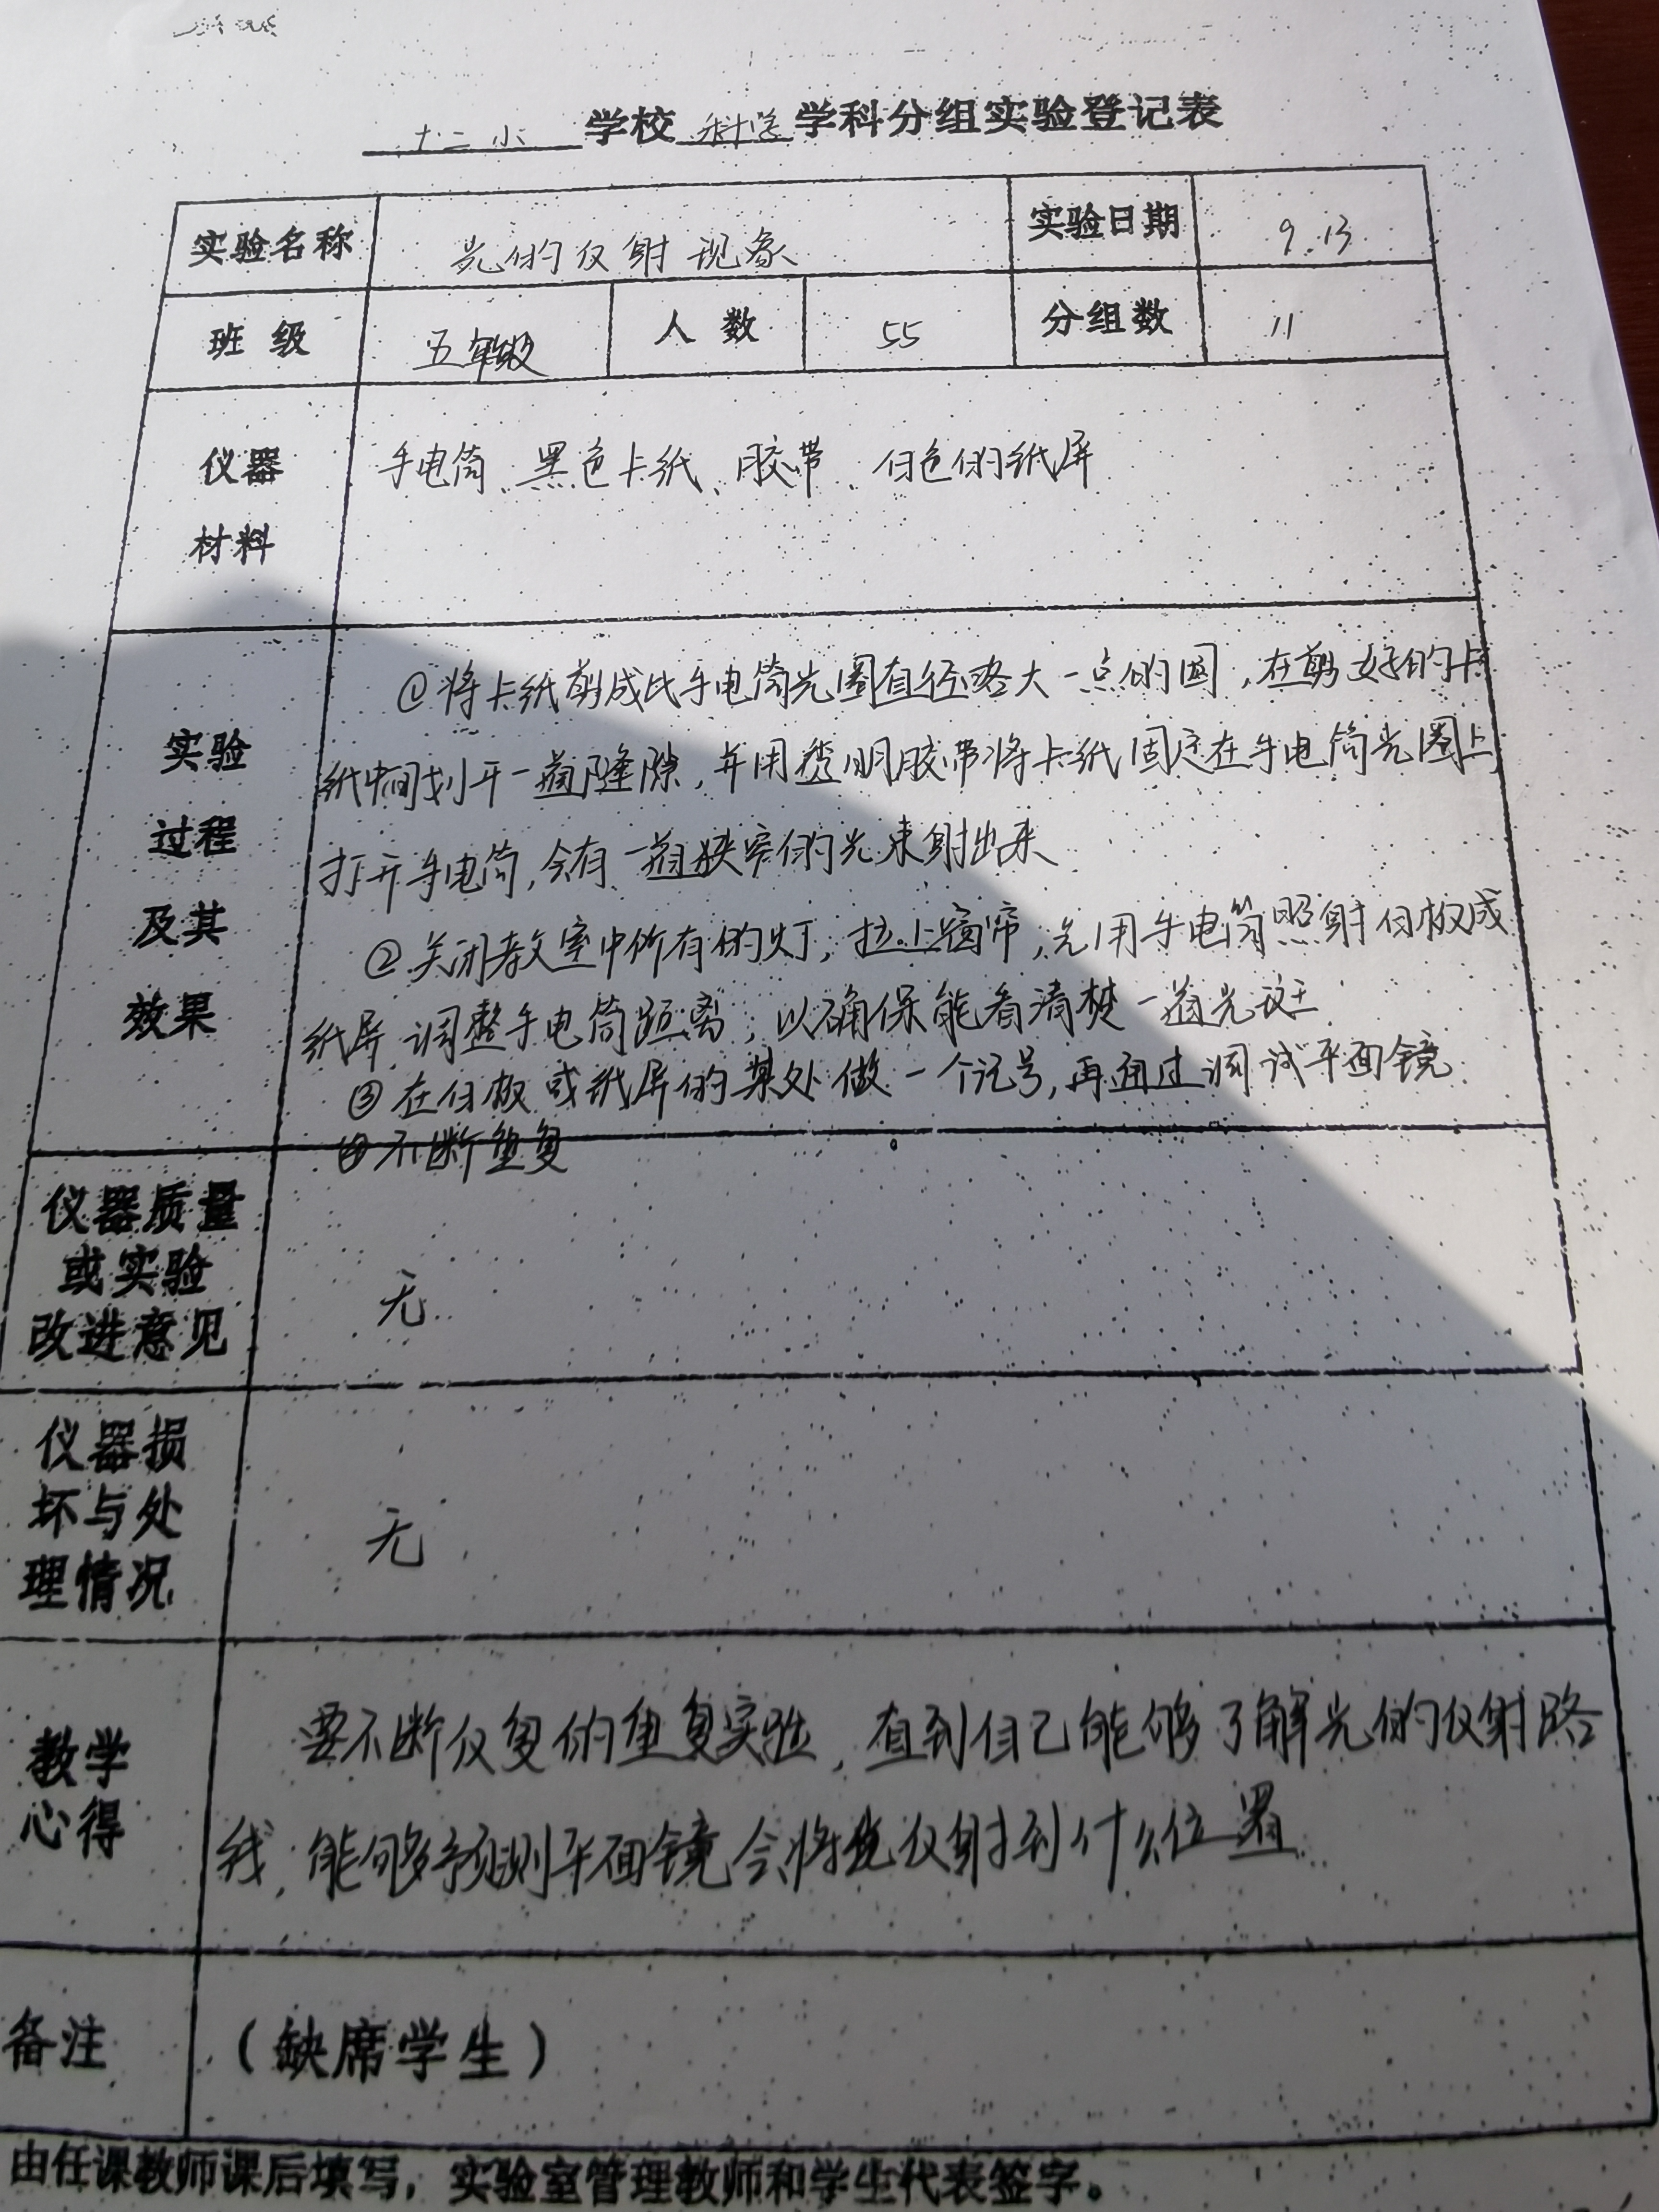 十二小 学校 科学 学科分组实验登记表
实验名称 光的反射现象 实验日期 9.13
班级 五年级 人数 55 分组数 11
仪器
材料
手电筒、黑色卡纸、胶带、白色的纸屏
实验
过程
及其
效果
①将卡纸剪成比手电筒光圈直径略大一点的圆,在剪好的卡
纸中间划开一道缝隙,并用透明胶带将卡纸固定在手电筒光圈上,
打开手电筒,会有一道狭窄的光束射出来
②关闭教室中所有的灯,拉上窗帘,先用手电筒照射白板或
纸屏,调整手电筒距离,以确保能看清楚一道光斑
③在白板或纸屏的某处做一个记号,再通过调试平面镜
④不断重复
仪器质量
或实验
改进意见
无
仪器损
坏与处
理情况
无
教学
心得
要不断反复的重复实验,直到自己能够了解光的反射路
线,能够预测平面镜会将光反射到什么位置
备注 (缺席学生)
由任课教师课后填写,实验室管理教师和学生代表签字。